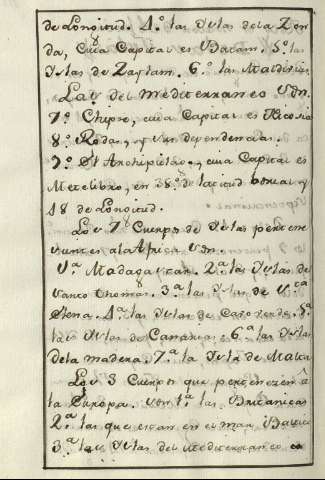 de Longitud. 4.º las Yslas de la Zon-
da, Cuia Capital es Batam. 5.º las
Yslas de Zeylam. 6.º las Maldivias
Las del Mediterraneo son.
7.º Chipre, cuia Capital es Nicosia
8.º Rodas, y sus dependencias.
9.º El Archipielago, cuia Capital es
en 38.º de latitud boreal y
48 de Longitud.
Los 7 Cuerpos de Yslas pertene
cientes ala Africa son.
1.ª Madagascar. 2.ª las Yslas de
Santo Thomas. 3.ª las Yslas de S.ta
Elena. 4.ª las Yslas de Caboverde. 5.ª
las Yslas de Canarias. 6.ª las Yslas
dela madera. 7.ª la Ysla de Malta
Los 3 Cuerpos que pertenezen â
la Europa. son 1.ª las Britanicas
2.ª las que estan en el mar Baltico
3.ª las Yslas del Mediterraneo